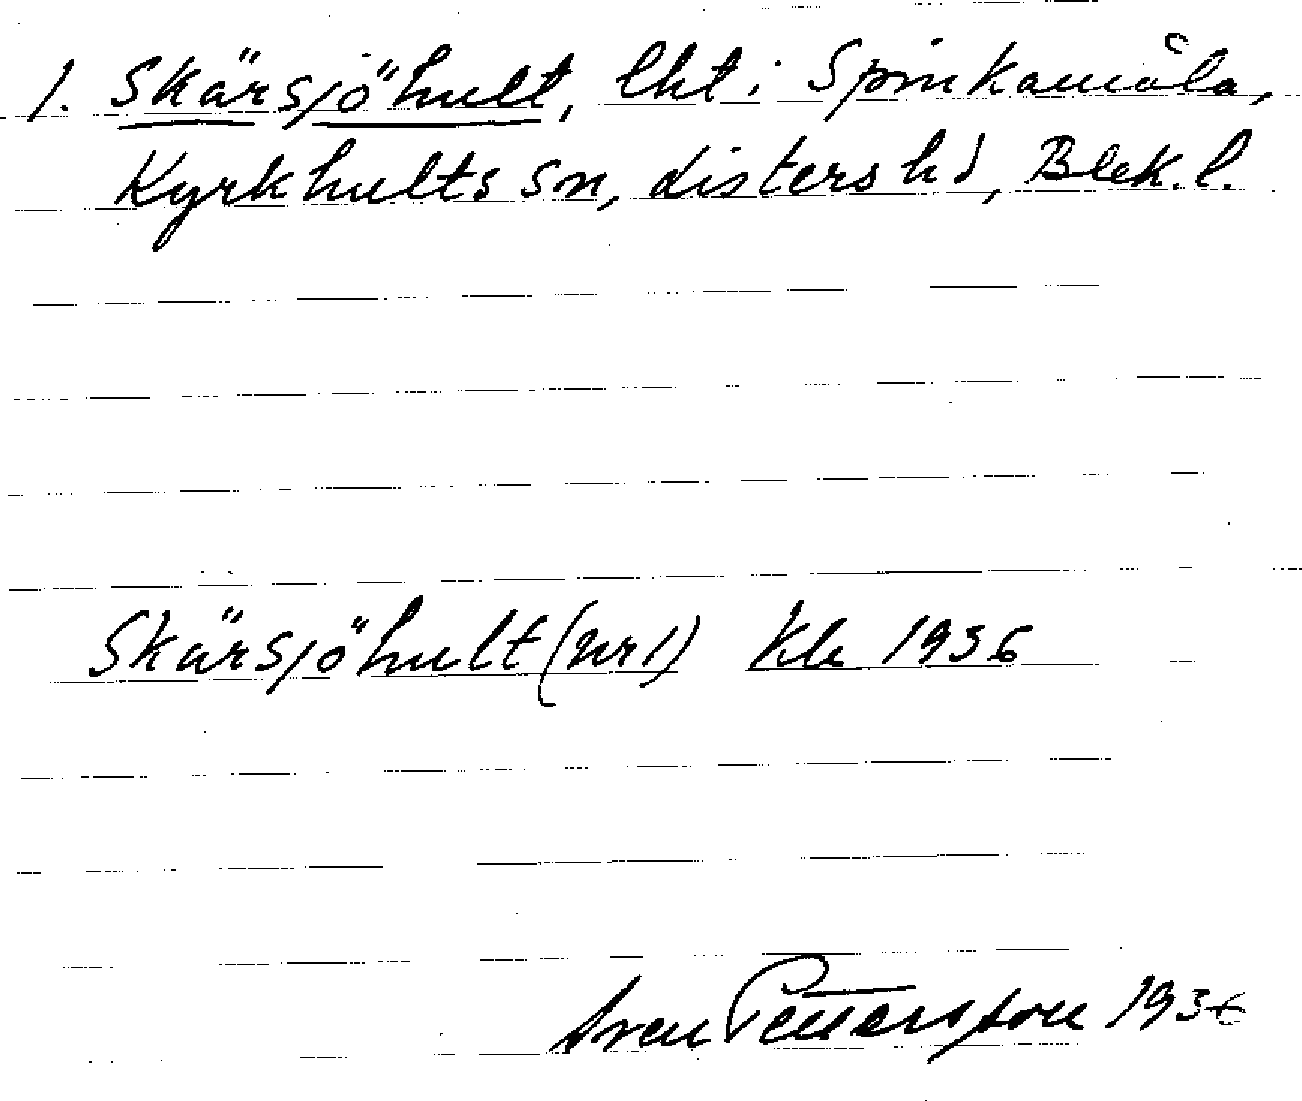 1. Skärsjöhult, lht i Spinkamåla,
Kyrkhults sn, Listers hd, Blek. l.
Skärsjöhult (nr 1) Kls 1936
Sven Pettersson 1936